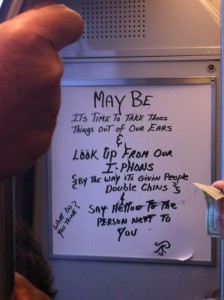 MAY BE
ITS TIME TO TAKE THOSE
THINGS OUT OF OUR EARS
&
LOOK UP FROM OUR
I-PHONS
& BY THE WAY ITS GIVIN PEOPLE
DOUBLE CHINS
&
SAY HELLO TO THE
PERSON NEXT TO
YOU
WHAT DO
YOU THINK?